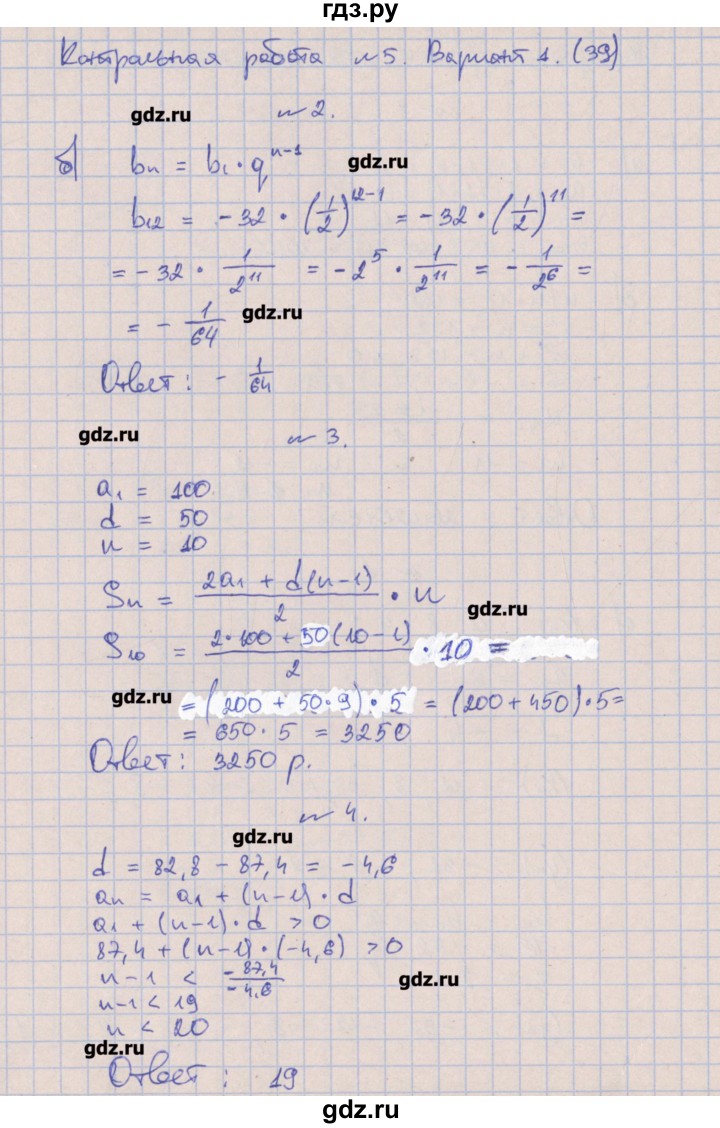 гдз.ру
Контрольная работа №5. Вариант 1. (39)
gdz.ru
№2.
б) bn = b1 · q^(n-1)
gdz.ru
b12 = -32 · (1/2)^(12-1) = -32 · (1/2)^11 =
= -32 · 1/2^11 = -2^5 · 1/2^11 = - 1/2^6 =
= - 1/64
gdz.ru
Ответ: - 1/64
gdz.ru
№3.
a1 = 100
d = 50
n = 10
Sn = (2a1 + d(n-1))/2 · n
gdz.ru
S10 = (2·100 + 50(10-1))/2 · 10 =
gdz.ru
= (200 + 50·9) · 5 = (200 + 450)·5=
= 650 · 5 = 3250
Ответ: 3250 р.
№4.
gdz.ru
d = 82,8 - 87,4 = -4,6
an = a1 + (n-1) · d
a1 + (n-1) · d > 0
87,4 + (n-1) · (-4,6) > 0
n-1 < -87,4/-4,6
gdz.ru
n-1 < 19
n < 20
gdz.ru
Ответ: 19
gdz.ru